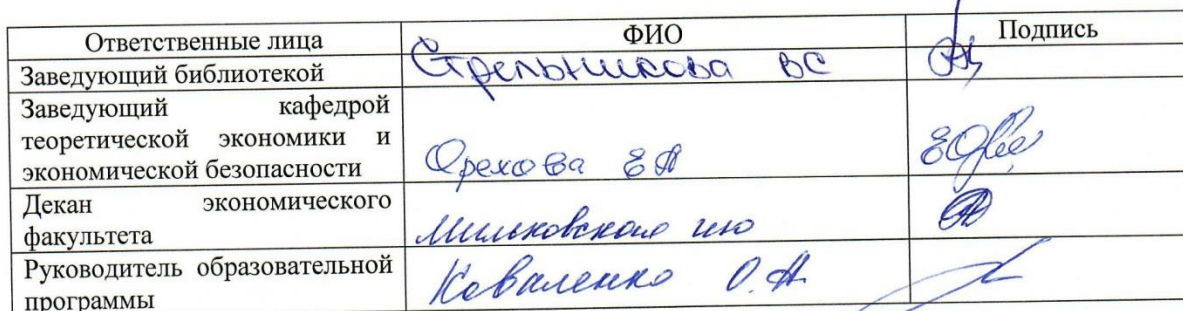 Ответственные лица ФИО Подпись
Заведующий библиотекой Стрельникова ВС
Заведующий кафедрой
теоретической экономики и
экономической безопасности Орехова ЕА
Декан экономического
факультета
Руководитель образовательной
программы Коваленко О.А.